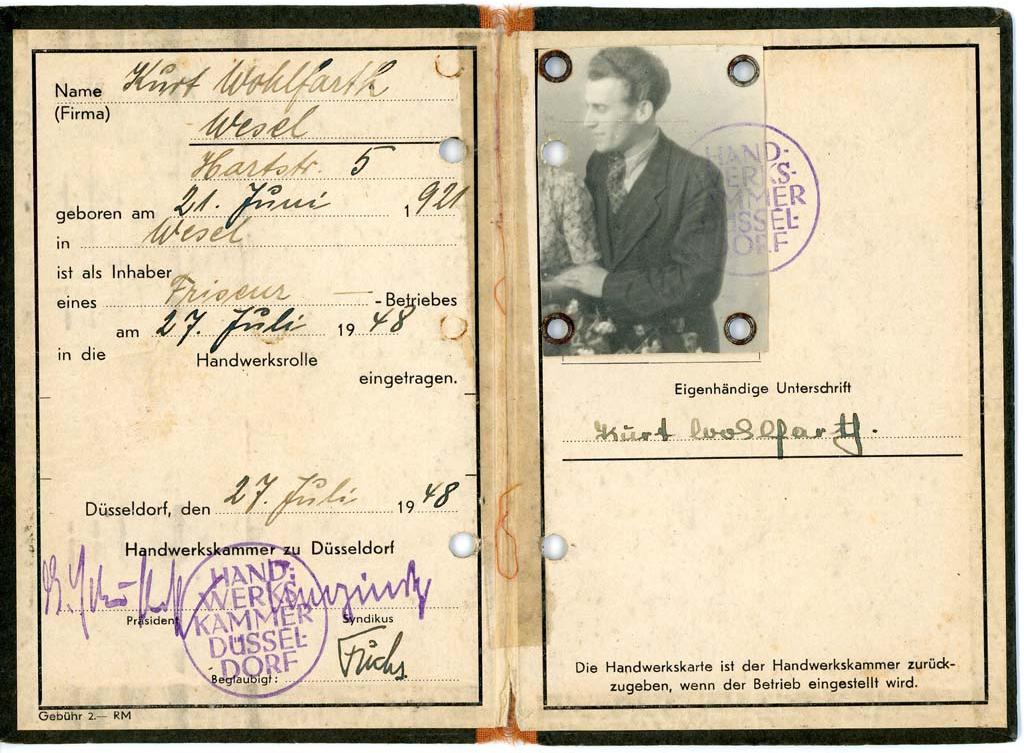 Name Kurt Wohlfarth
(Firma)
Wesel
Hartstr. 5
geboren am 21. Juni 1921
in Wesel
ist als Inhaber
eines Friseur — -Betriebes
am 27. Juli 1948
in die Handwerksrolle
eingetragen.
Düsseldorf, den 27. Juli 1948
Handwerkskammer zu Düsseldorf
HAND-
WERKS-
KAMMER
DÜSSEL-
DORF
Präsident Syndikus
Beglaubigt: Fuchs
Gebühr 2.— RM
HAND-
ERKS-
MMER
SSEL-
ORF
Eigenhändige Unterschrift
Kurt Wohlfarth.
Die Handwerkskarte ist der Handwerkskammer zurück-
zugeben, wenn der Betrieb eingestellt wird.